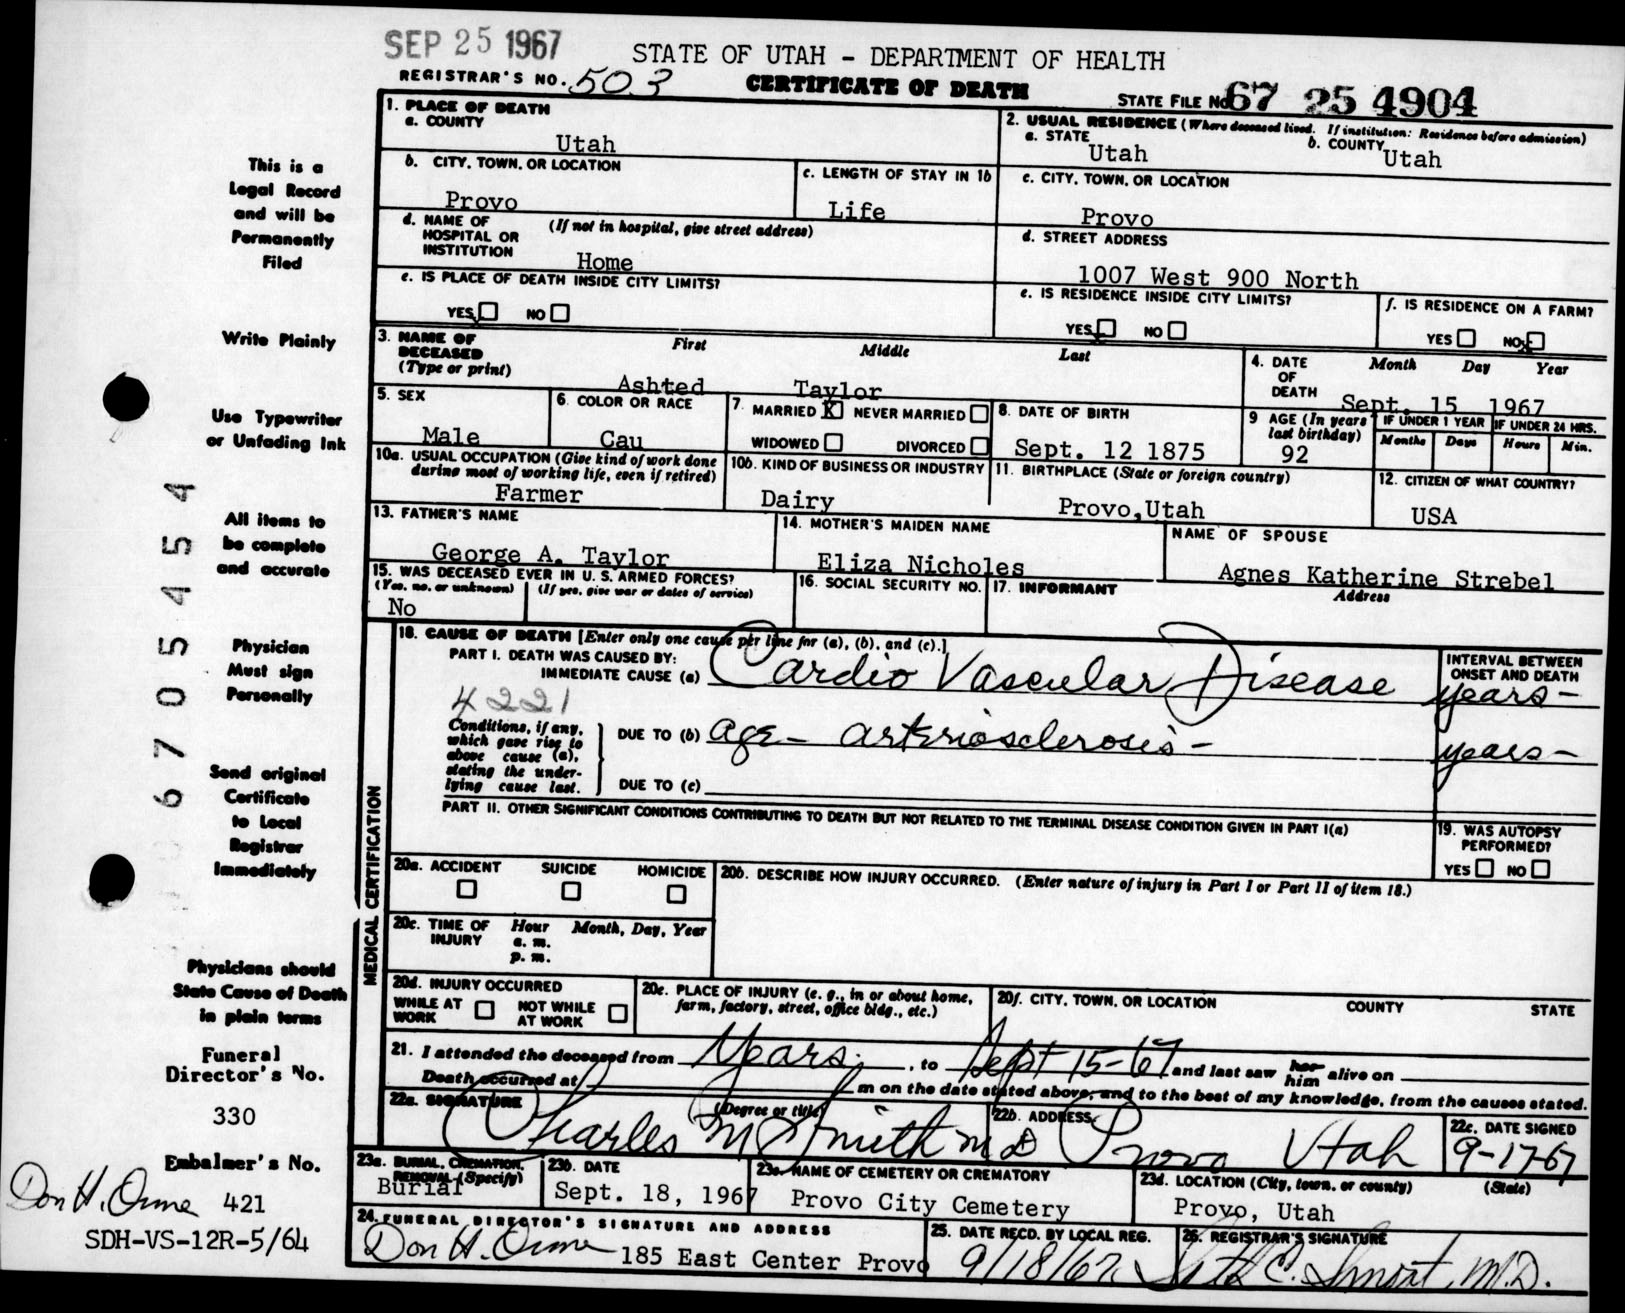 SEP 25 1967
STATE OF UTAH - DEPARTMENT OF HEALTH
REGISTRAR'S NO. 503
CERTIFICATE OF DEATH
STATE FILE NO. 67 25 4904
1. PLACE OF DEATH
a. COUNTY
Utah
2. USUAL RESIDENCE (Where deceased lived. If institution: Residence before admission)
a. STATE
Utah
b. COUNTY
Utah
b. CITY, TOWN, OR LOCATION
Provo
c. LENGTH OF STAY IN 1b
Life
c. CITY, TOWN, OR LOCATION
Provo
d. NAME OF HOSPITAL OR INSTITUTION
(If not in hospital, give street address)
Home
d. STREET ADDRESS
1007 West 900 North
e. IS PLACE OF DEATH INSIDE CITY LIMITS?
YES NO
e. IS RESIDENCE INSIDE CITY LIMITS?
YES NO
f. IS RESIDENCE ON A FARM?
YES NO
3. NAME OF DECEASED
(Type or print)
First Middle Last
Ashted Taylor
4. DATE OF DEATH
Month Day Year
Sept. 15 1967
5. SEX
Male
6. COLOR OR RACE
Cau
7. MARRIED X NEVER MARRIED
WIDOWED DIVORCED
8. DATE OF BIRTH
Sept. 12 1875
9 AGE (In years last birthday)
92
IF UNDER 1 YEAR
Months Days
IF UNDER 24 HRS.
Hours Min.
10a. USUAL OCCUPATION (Give kind of work done during most of working life, even if retired)
Farmer
10b. KIND OF BUSINESS OR INDUSTRY
Dairy
11. BIRTHPLACE (State or foreign country)
Provo,Utah
12. CITIZEN OF WHAT COUNTRY?
USA
13. FATHER'S NAME
George A. Taylor
14. MOTHER'S MAIDEN NAME
Eliza Nicholes
NAME OF SPOUSE
Agnes Katherine Strebel
15. WAS DECEASED EVER IN U. S. ARMED FORCES?
(Yes, no, or unknown) (If yes, give war or dates of service)
No
16. SOCIAL SECURITY NO.
17. INFORMANT
Address
MEDICAL CERTIFICATION
18. CAUSE OF DEATH [Enter only one cause per line for (a), (b), and (c).]
PART I. DEATH WAS CAUSED BY:
IMMEDIATE CAUSE (a) Cardio Vascular Disease
INTERVAL BETWEEN ONSET AND DEATH
years -
4221
Conditions, if any, which gave rise to above cause (a), stating the underlying cause last.
DUE TO (b) age - arteriosclerosis -
years -
DUE TO (c)
PART II. OTHER SIGNIFICANT CONDITIONS CONTRIBUTING TO DEATH BUT NOT RELATED TO THE TERMINAL DISEASE CONDITION GIVEN IN PART I(a)
19. WAS AUTOPSY PERFORMED?
YES NO
20a. ACCIDENT SUICIDE HOMICIDE
20b. DESCRIBE HOW INJURY OCCURRED. (Enter nature of injury in Part I or Part II of item 18.)
20c. TIME OF INJURY
Hour Month, Day, Year
a. m.
p. m.
20d. INJURY OCCURRED
WHILE AT WORK NOT WHILE AT WORK
20e. PLACE OF INJURY (e. g., in or about home, farm, factory, street, office bldg., etc.)
20f. CITY, TOWN, OR LOCATION COUNTY STATE
21. I attended the deceased from Years, to Sept 15-67 and last saw her him alive on
Death occurred at m on the date stated above, and to the best of my knowledge, from the causes stated.
22a. SIGNATURE (Degree or title)
Charles M Smith MD
22b. ADDRESS
Provo Utah
22c. DATE SIGNED
9-17-67
23a. BURIAL, CREMATION, REMOVAL (Specify)
Burial
23b. DATE
Sept. 18, 1967
23c. NAME OF CEMETERY OR CREMATORY
Provo City Cemetery
23d. LOCATION (City, town, or county) (State)
Provo, Utah
24. FUNERAL DIRECTOR'S SIGNATURE AND ADDRESS
Don H. Orme 185 East Center Provo
25. DATE RECD. BY LOCAL REG.
9/18/67
26. REGISTRAR'S SIGNATURE
Seth E. Smoot, M.D.
This is a
Legal Record
and will be
Permanently
Filed
Write Plainly
Use Typewriter
or Unfading Ink
All items to
be complete
and accurate
Physician
Must sign
Personally
Send original
Certificate
to Local
Registrar
Immediately
Physicians should
State Cause of Death
in plain terms
Funeral
Director's No.
330
Embalmer's No.
Don H. Orme 421
SDH-VS-12R-5/64
6705454